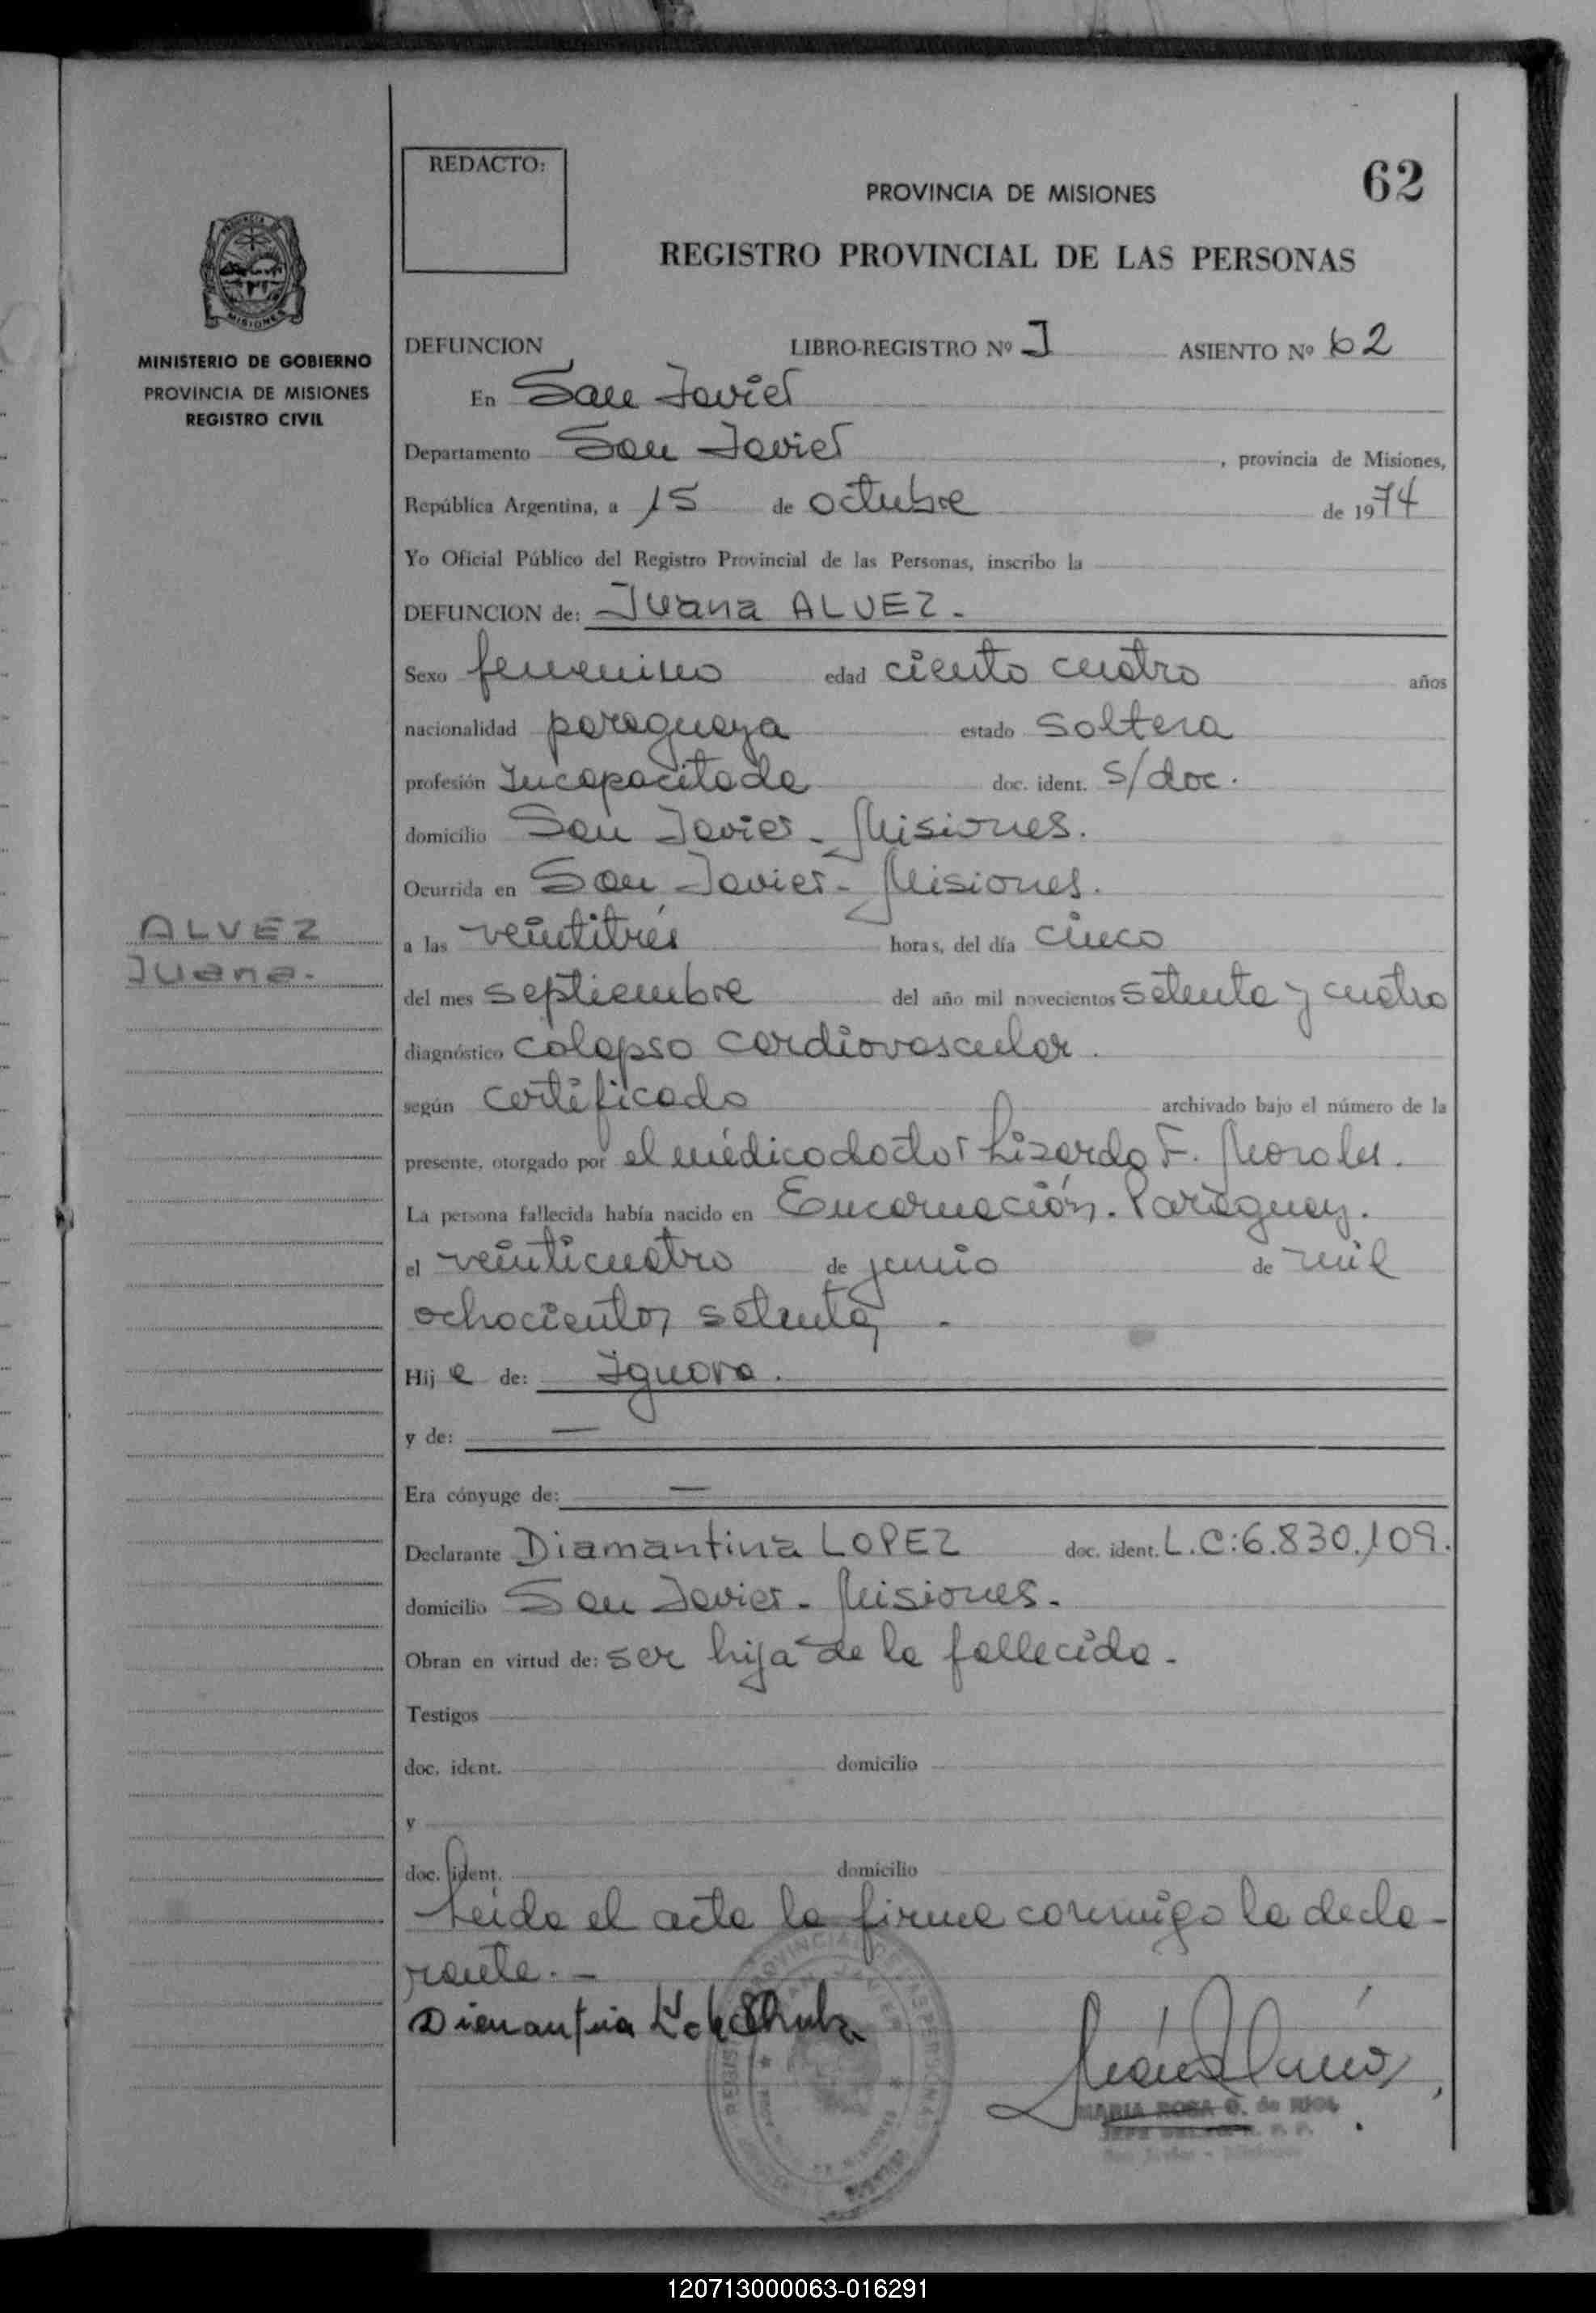 REDACTO:
62
PROVINCIA DE MISIONES
REGISTRO PROVINCIAL DE LAS PERSONAS
MISIONES
MINISTERIO DE GOBIERNO
PROVINCIA DE MISIONES
REGISTRO CIVIL
DEFUNCION LIBRO-REGISTRO Nº I ASIENTO Nº 62
En San Javier
Departamento San Javier, provincia de Misiones,
República Argentina, a 15 de octubre de 1974
Yo Oficial Público del Registro Provincial de las Personas, inscribo la
DEFUNCION de: Juana ALVEZ.-
Sexo femenino edad ciento cuatro años
nacionalidad paraguaya estado soltera
profesión Incapacitada doc. ident. s/doc.
domicilio San Javier - Misiones.
Ocurrida en San Javier - Misiones.
ALVEZ
Juana.
a las veintitrés horas, del día cinco
del mes septiembre del año mil novecientos setenta y cuatro
diagnóstico colapso cardiovascular.
según certificado archivado bajo el número de la
presente, otorgado por el médico doctor Lizardo F. Morales.
La persona fallecida había nacido en Encarnación. Paraguay.
el veinticuatro de junio de mil
ochocientos setenta -
Hija de: Ignora.
y de: —
Era cónyuge de: —
Declarante Diamantina LOPEZ doc. ident. L.C:6.830.109.
domicilio San Javier - Misiones.
Obran en virtud de: ser hija de la fallecida.
Testigos
doc. ident. domicilio
y
doc. ident. domicilio
Leida el acta la firma conmigo la decla-
rante.-
MARIA ROSA G. de RIOS
120713000063-016291